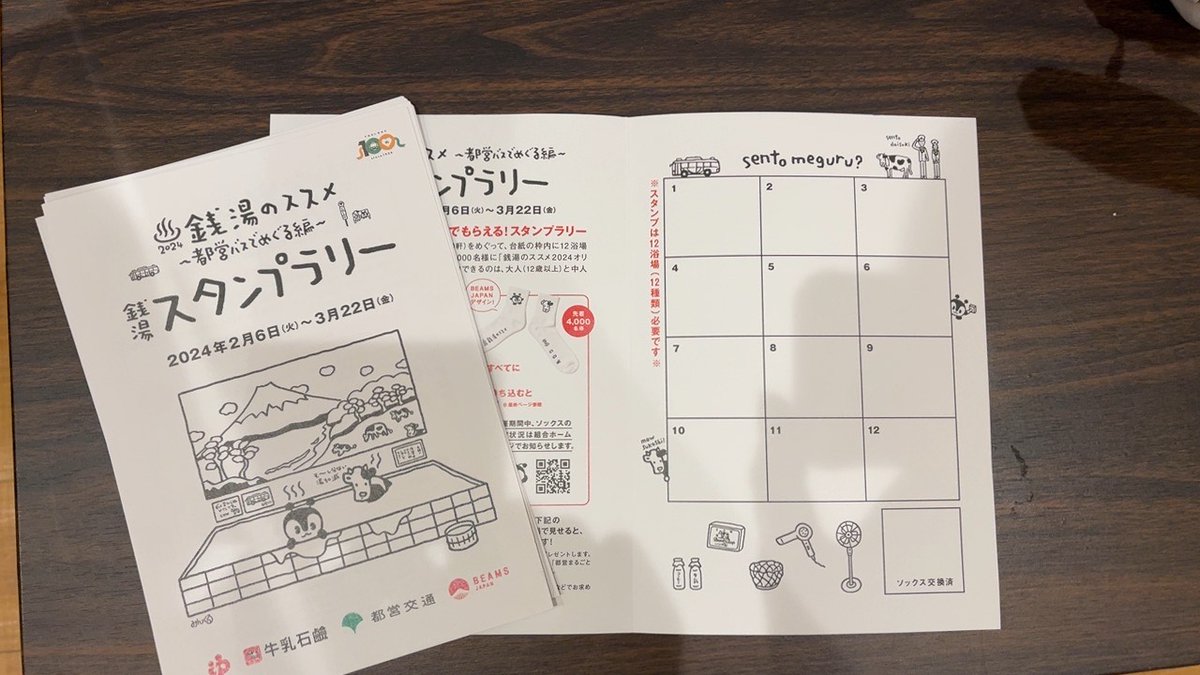 100
銭湯のススメ
2024
～都営バスでめぐる編～
銭湯
スタンプラリー
2024年2月6日(火)～3月22日(金)
牛乳石鹼
都営交通
BEAMS
JAPAN
スメ ～都営バスでめぐる編～
ンプラリー
月6日(火)～3月22日(金)
でもらえる!スタンプラリー
軒)をめぐって、台紙の枠内に12浴場
000名様に「銭湯のススメ2024オリ
できるのは、大人(12歳以上)と中人
BEAMS
JAPAN
デザイン!
先着
4,000
名様
すべてに
ち込むと
催期間中、ソックスの
状況は組合ホーム
ジでお知らせします。
下記の
で見せると、
す!
レゼントします。
「都営まるごと
どでお求め
sento meguru?
sento
daisuki
※スタンプは12浴場(12種類)必要です※
1
2
3
4
5
6
7
8
9
10
11
12
ソックス交換済